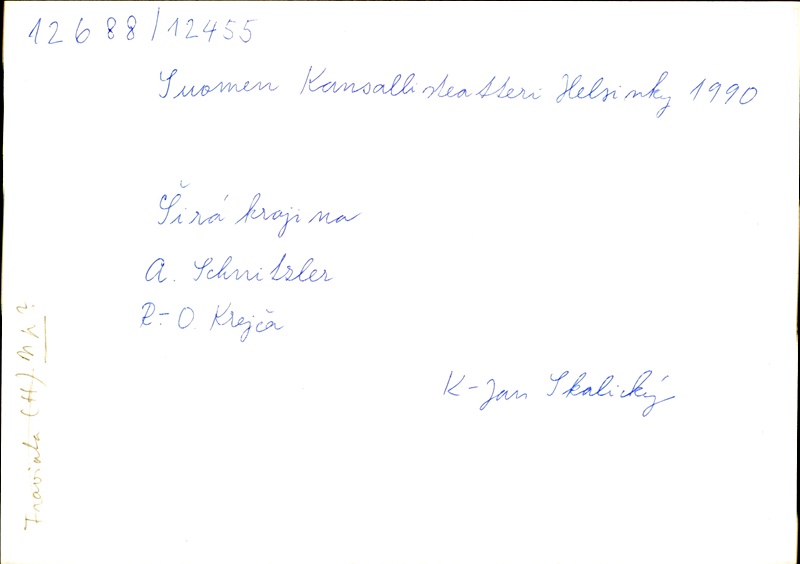 12688/12455
Suomen Kansallisteatteri Helsinky 1990
Širá krajina
A. Schnitzler
R-O. Krejča
K-Jan Skalický
Traviata (H)